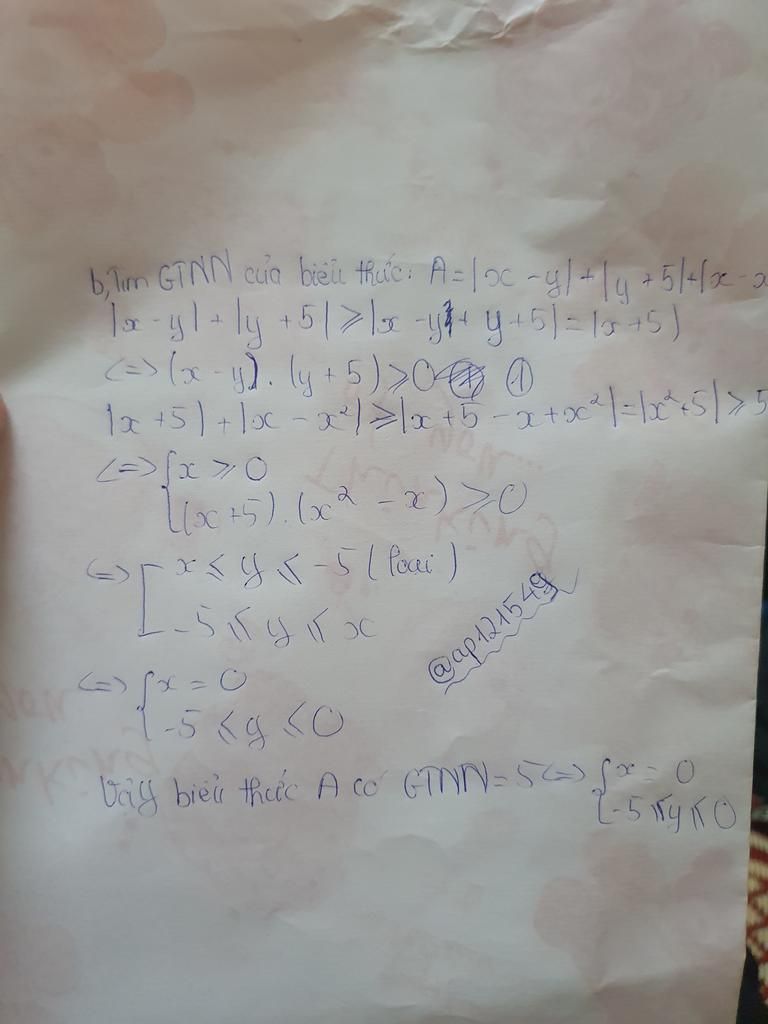 b, Tìm GTNN của biểu thức: A = |x - y| + |y + 5| + |x - x
|x - y| + |y + 5| ≥ |x - y + y + 5| = |x + 5|
<=> (x - y). (y + 5) ≥ 0 ①
|x + 5| + |x - x²| ≥ |x + 5 - x + x²| = |x² + 5| ≥ 5
<=> { x ≥ 0
(x + 5). (x² - x) ≥ 0
<=> [ x ≤ y ≤ -5 (loại)
-5 ≤ y ≤ x
@ap121549
<=> { x = 0
-5 ≤ y ≤ 0
Vậy biểu thức A có GTNN = 5 <=> { x = 0
-5 ≤ y ≤ 0